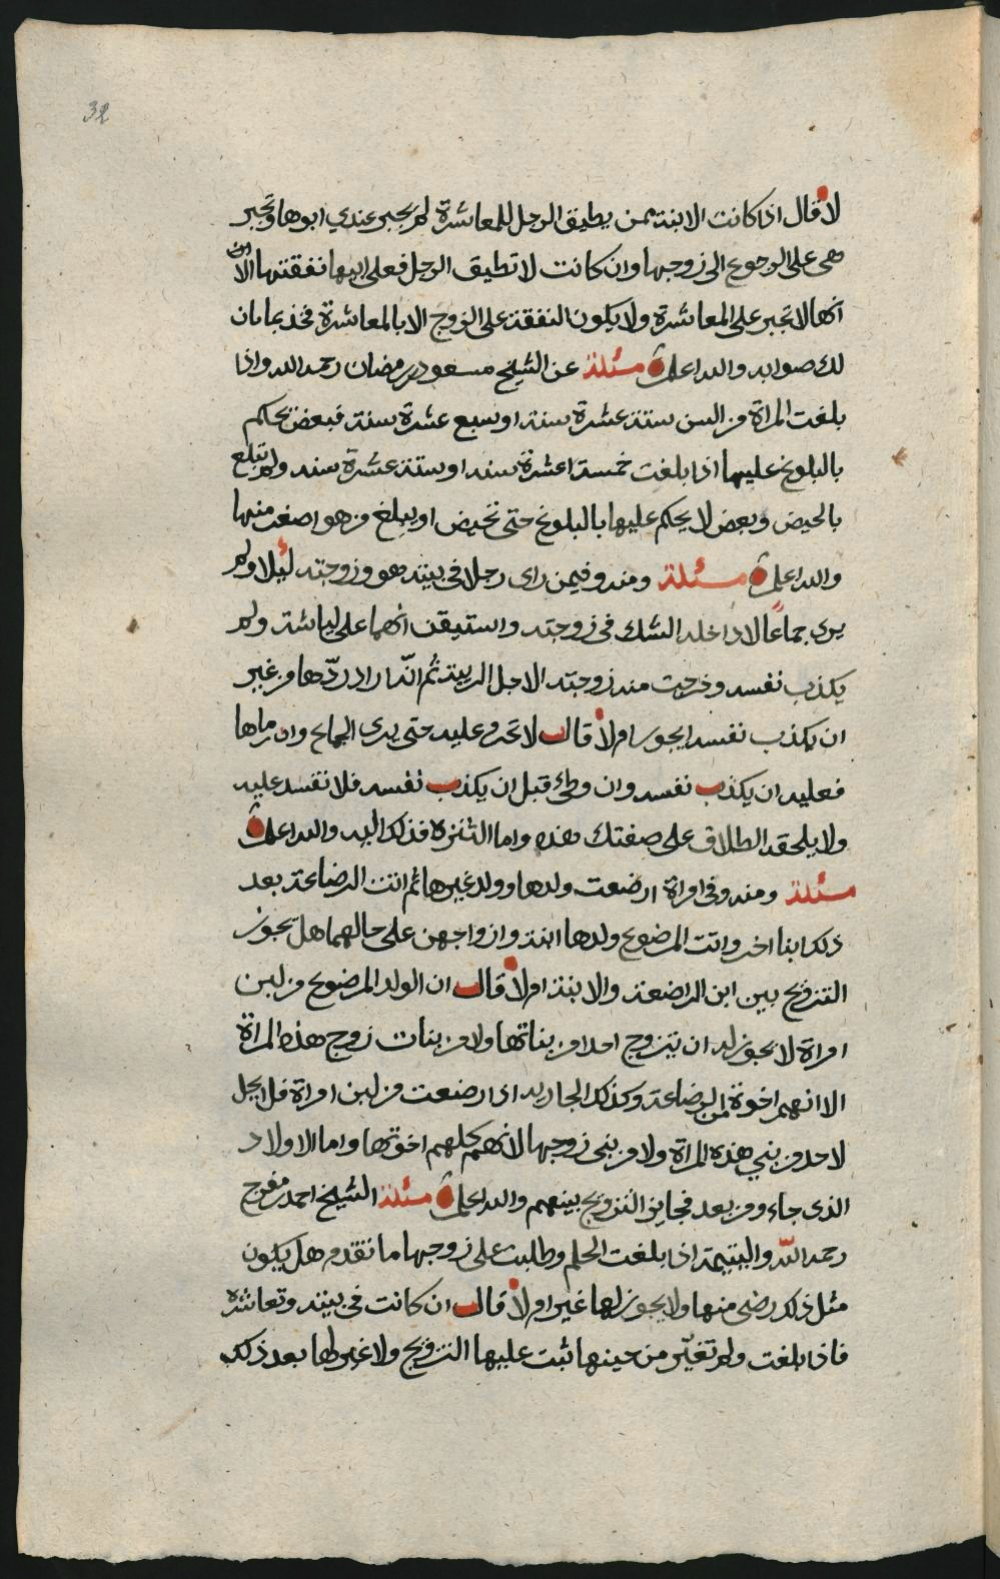 32
لا قال اذا كانت الابنة ممن يطيق الرجل للمعاشرة لم يجبر عندي ابوها وتجبر
هي على الرجوع الى زوجها وان كانت لا تطيق الرجل فعلى ابيها نفقتها الا من
انها لا تجبر على المعاشرة ولا يكون النفقة على الزوج الا بالمعاشرة فخذ بما بان
لك صوابه والله اعلم مسئلة عن الشيخ مسعود بن رمضان رحمه الله واذا
بلغت المراة من السن ستة عشرة سنة او سبع عشرة سنة فبعض يحكم
بالبلوغ عليها اذا بلغت خمسة اعشرة سنه او ستة عشرة سنه ولم تبلغ
بالحيض وبعض لا يحكم عليها بالبلوغ حتى تحيض او يبلغ من هو اصغر منها
والله اعلم مسئلة ومنه وفيمن راى رجلا في بيته هو وزوجته ليلا ولم
يرى جماعا الا داخله الشك في زوجته واستيقن انهما على لباشة ولم
يكذب نفسه وخرجت منه زوجته الاجل الريبة ثم انه اراد ردها من غير
ان يكذب نفسه ايجوز ام لا قال لا تحرم عليه حتى يرى الجماع وان رماها
فعليه ان يكذب نفسه وان وطئ قبل ان يكذب نفسه فلا نفسد عليه
ولا يلحقه الطلاق على صفتك هذه واما التنزه فذلك اليه والله اعلم
مسئلة ومنه وفي امراة ارضعت ولدها وولد غيرها ثم اتت الرضاعة بعد
ذلك ابنا اخر واتت المرضوع ولدها ابنة وازواجهن على حالهما هل يجوز
التزويج بين ابن المراضعة والابنة ام لا قال ان الولد المرضوع من لبن
امراة لا يجوز له ان يتزوج احدا من بناتها ولا من بنات زوج هذه المراة
الا انهم اخوة من الرضاعة وكذلك الجاريه اذا رضعت من لبن امراة فلا يحل
لاحد من بني هذه المراة ولا من بني زوجها لانهم كلهم اخوتها واما الاولاد
الذى جاء ومن بعد فجايز التزويج بينهم والله اعلم مسئلة الشيخ احمد بن مفرج
رحمه الله واليتيمة اذا بلغت الحلم وطلبت على زوجها ما تقدم هل يكون
مثل ذلك رضى منها ولا يجوز لها غير ام لا قال ان كانت في بيته وتعاشره
فاذا بلغت ولم تغير من حينها ثبت عليها التزويج ولا غير لها بعد ذلك